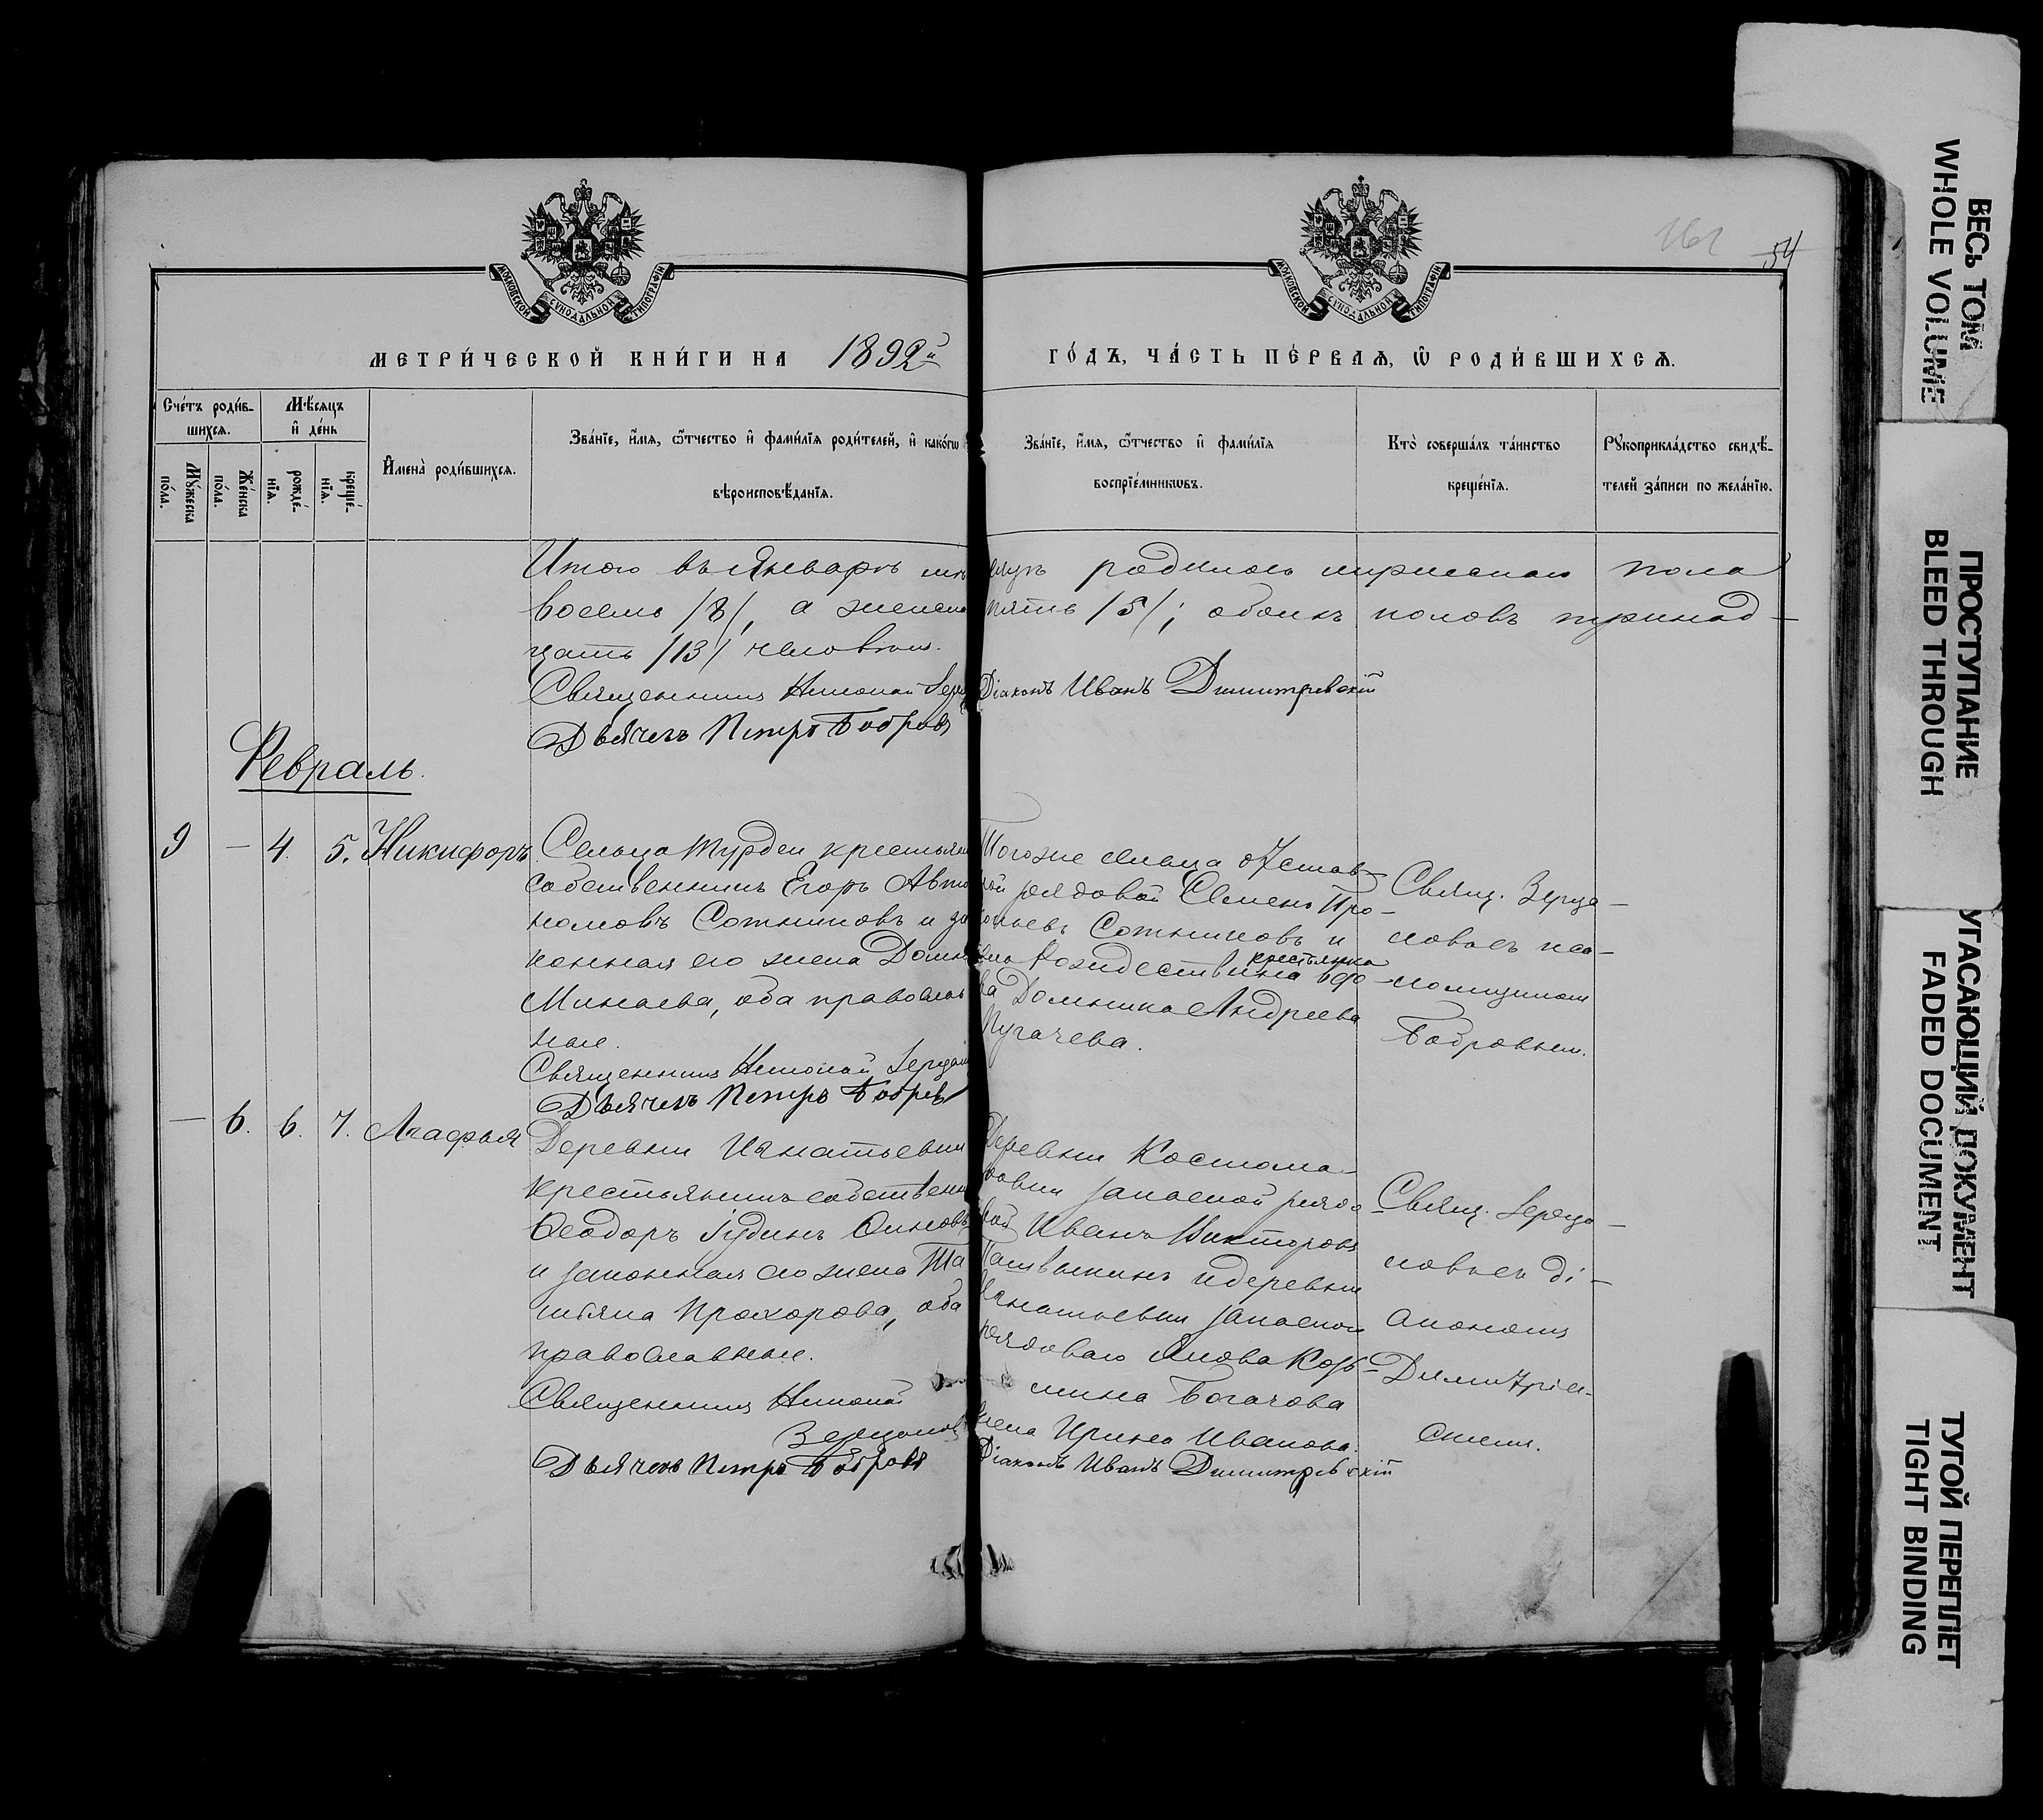 161
54
МОСКОВСКОЙ СѴНОДАЛЬНОЙ ТИПОГРАФІИ
МОСКОВСКОЙ СѴНОДАЛЬНОЙ ТИПОГРАФІИ
МЕТРИ́ЧЕСКОЙ КНИ́ГИ НА 1892й
ГО́ДЪ, ЧА́СТЬ ПЕ́РВАѦ, Ѡ҆ РОДИ́ВШИХСѦ.
Сче́тъ роди́в-
шихсѧ.
Мѣ́сѧцъ
и҆ де́нь
Мꙋ́жеска
по́ла.
Же́нска
по́ла.
рожде́-
нїѧ.
креще́-
нїѧ.
И҆мена̀ роди́вшихсѧ.
Зва́нїе, и҆́мѧ, ѻ҆́тчество и҆ фами́лїѧ роди́телей, и҆ како́гѡ
вѣроисповѣ́данїѧ.
Зва́нїе, и҆́мѧ, ѻ҆́тчество и҆ фами́лїѧ
воспрїе́мникѡвъ.
Кто̀ соверша́лъ та́инство
креще́нїѧ.
Рꙋкоприкла́дство свидѣ́-
телей за́писи по жела́нїю.
Итого въ Январѣ мѣ
сяцѣ родилось мужескаго пола
восемь /8/, а женска
пять /5/; обоихъ половъ тринад-
цать /13/ человѣкъ.
Священникъ Николай Зерц
Діаконъ Иванъ Димитревскій
Дьячекъ Петръ Бобровъ
Февраль.
9 — 4. 5. Никифоръ.
Сельца Турдеи крестьян
собственникъ Егоръ Авто
номовъ Сотниковъ и за
конная его жена Домн
Минаева, оба православ
ные.
Священникъ Николай Зерцал
Дьячекъ Петръ Бобров
Тогоже сельца отстав-
ной рядовой Семенъ Про-
Сотниковъ и
крестьянка
Рождествина вдо-
ва Домника Андреева
Пугачева.
Свящ. Зерца-
ловъ съ пса-
ломщикомъ
Бобровымъ.
— 6. 6. 7. Агафья
Деревни Игнатьевки
крестьянинъ собственн
Ѳеодоръ Іудинъ
и законная его жена Та
тіяна Прохорова, оба
православные.
Священникъ Николай
Зерцалов
Дьячекъ Петръ Бобровъ
Деревни Костома-
ровки запасной рядо-
вой Иванъ Викторовъ
и деревни
Игнатьевки запаснаго
рядоваго Якова Козь-
мина Богачова
жена Ирина Иванова.
Діаконъ Иванъ Димитревскій
Свящ. Зерца-
ловъ съ ді-
акономъ
Димитріев-
скимъ.
ВЕСЬ ТОМ
WHOLE VOLUME
ПРОСТУПАНИЕ
BLEED THROUGH
УГАСАЮЩИЙ ДОКУМЕНТ
FADED DOCUMENT
ТУГОЙ ПЕРЕПЛЕТ
TIGHT BINDING